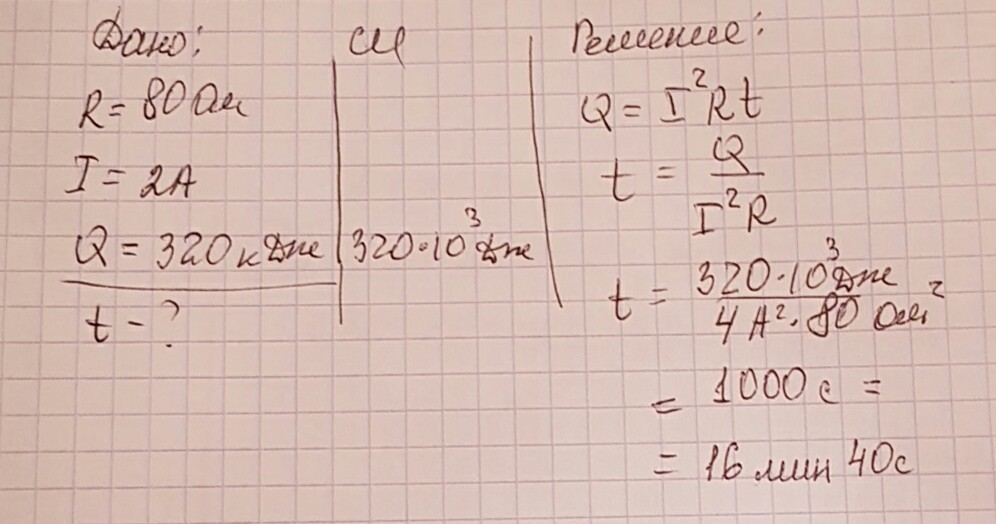 Дано:
R = 80 Ом
I = 2А
Q = 320 кДж
t - ?
СИ
320·10³ Дж
Решение:
Q = I²Rt
t = Q / I²R
t = 320·10³ Дж / 4 А²·80 Ом² =
= 1000 с =
= 16 мин 40с